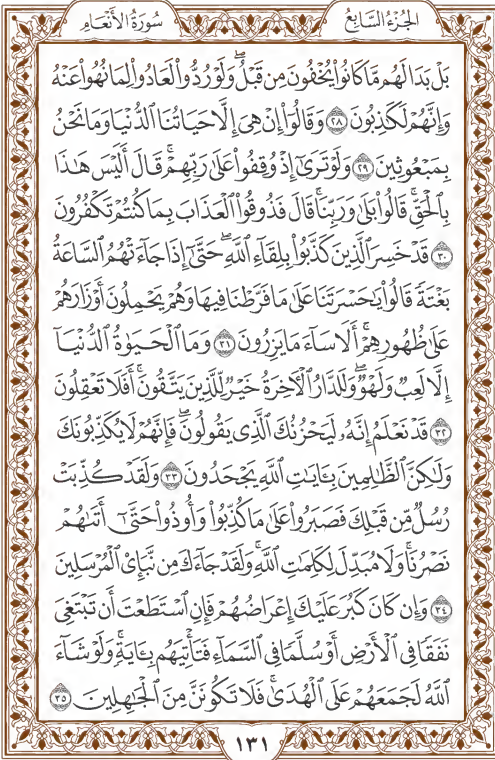 سُورَةُ الأَنْعَام الجُزْءُ السَّابِعُ
بَلْ بَدَا لَهُم مَّا كَانُوا۟ يُخْفُونَ مِن قَبْلُ ۖ وَلَوْ رُدُّوا۟ لَعَادُوا۟ لِمَا نُهُوا۟ عَنْهُ
وَإِنَّهُمْ لَكَـٰذِبُونَ ٢٨ وَقَالُوٓا۟ إِنْ هِىَ إِلَّا حَيَاتُنَا ٱلدُّنْيَا وَمَا نَحْنُ
بِمَبْعُوثِينَ ٢٩ وَلَوْ تَرَىٰٓ إِذْ وُقِفُوا۟ عَلَىٰ رَبِّهِمْ ۚ قَالَ أَلَيْسَ هَـٰذَا
بِٱلْحَقِّ ۚ قَالُوا۟ بَلَىٰ وَرَبِّنَا ۚ قَالَ فَذُوقُوا۟ ٱلْعَذَابَ بِمَا كُنتُمْ تَكْفُرُونَ
٣٠ قَدْ خَسِرَ ٱلَّذِينَ كَذَّبُوا۟ بِلِقَآءِ ٱللَّهِ ۖ حَتَّىٰٓ إِذَا جَآءَتْهُمُ ٱلسَّاعَةُ
بَغْتَةً قَالُوا۟ يَـٰحَسْرَتَنَا عَلَىٰ مَا فَرَّطْنَا فِيهَا وَهُمْ يَحْمِلُونَ أَوْزَارَهُمْ
عَلَىٰ ظُهُورِهِمْ ۚ أَلَا سَآءَ مَا يَزِرُونَ ٣١ وَمَا ٱلْحَيَوٰةُ ٱلدُّنْيَآ
إِلَّا لَعِبٌ وَلَهْوٌ ۖ وَلَلدَّارُ ٱلْـَٔاخِرَةُ خَيْرٌ لِّلَّذِينَ يَتَّقُونَ ۗ أَفَلَا تَعْقِلُونَ
٣٢ قَدْ نَعْلَمُ إِنَّهُۥ لَيَحْزُنُكَ ٱلَّذِى يَقُولُونَ ۖ فَإِنَّهُمْ لَا يُكَذِّبُونَكَ
وَلَـٰكِنَّ ٱلظَّـٰلِمِينَ بِـَٔايَـٰتِ ٱللَّهِ يَجْحَدُونَ ٣٣ وَلَقَدْ كُذِّبَتْ
رُسُلٌ مِّن قَبْلِكَ فَصَبَرُوا۟ عَلَىٰ مَا كُذِّبُوا۟ وَأُوذُوا۟ حَتَّىٰٓ أَتَىٰهُمْ
نَصْرُنَا ۚ وَلَا مُبَدِّلَ لِكَلِمَـٰتِ ٱللَّهِ ۚ وَلَقَدْ جَآءَكَ مِن نَّبَإِى۟ ٱلْمُرْسَلِينَ
٣٤ وَإِن كَانَ كَبُرَ عَلَيْكَ إِعْرَاضُهُمْ فَإِنِ ٱسْتَطَعْتَ أَن تَبْتَغِىَ
نَفَقًا فِى ٱلْأَرْضِ أَوْ سُلَّمًا فِى ٱلسَّمَآءِ فَتَأْتِيَهُم بِـَٔايَةٍ ۚ وَلَوْ شَآءَ
ٱللَّهُ لَجَمَعَهُمْ عَلَى ٱلْهُدَىٰ ۚ فَلَا تَكُونَنَّ مِنَ ٱلْجَـٰهِلِينَ ٣٥
١٣١